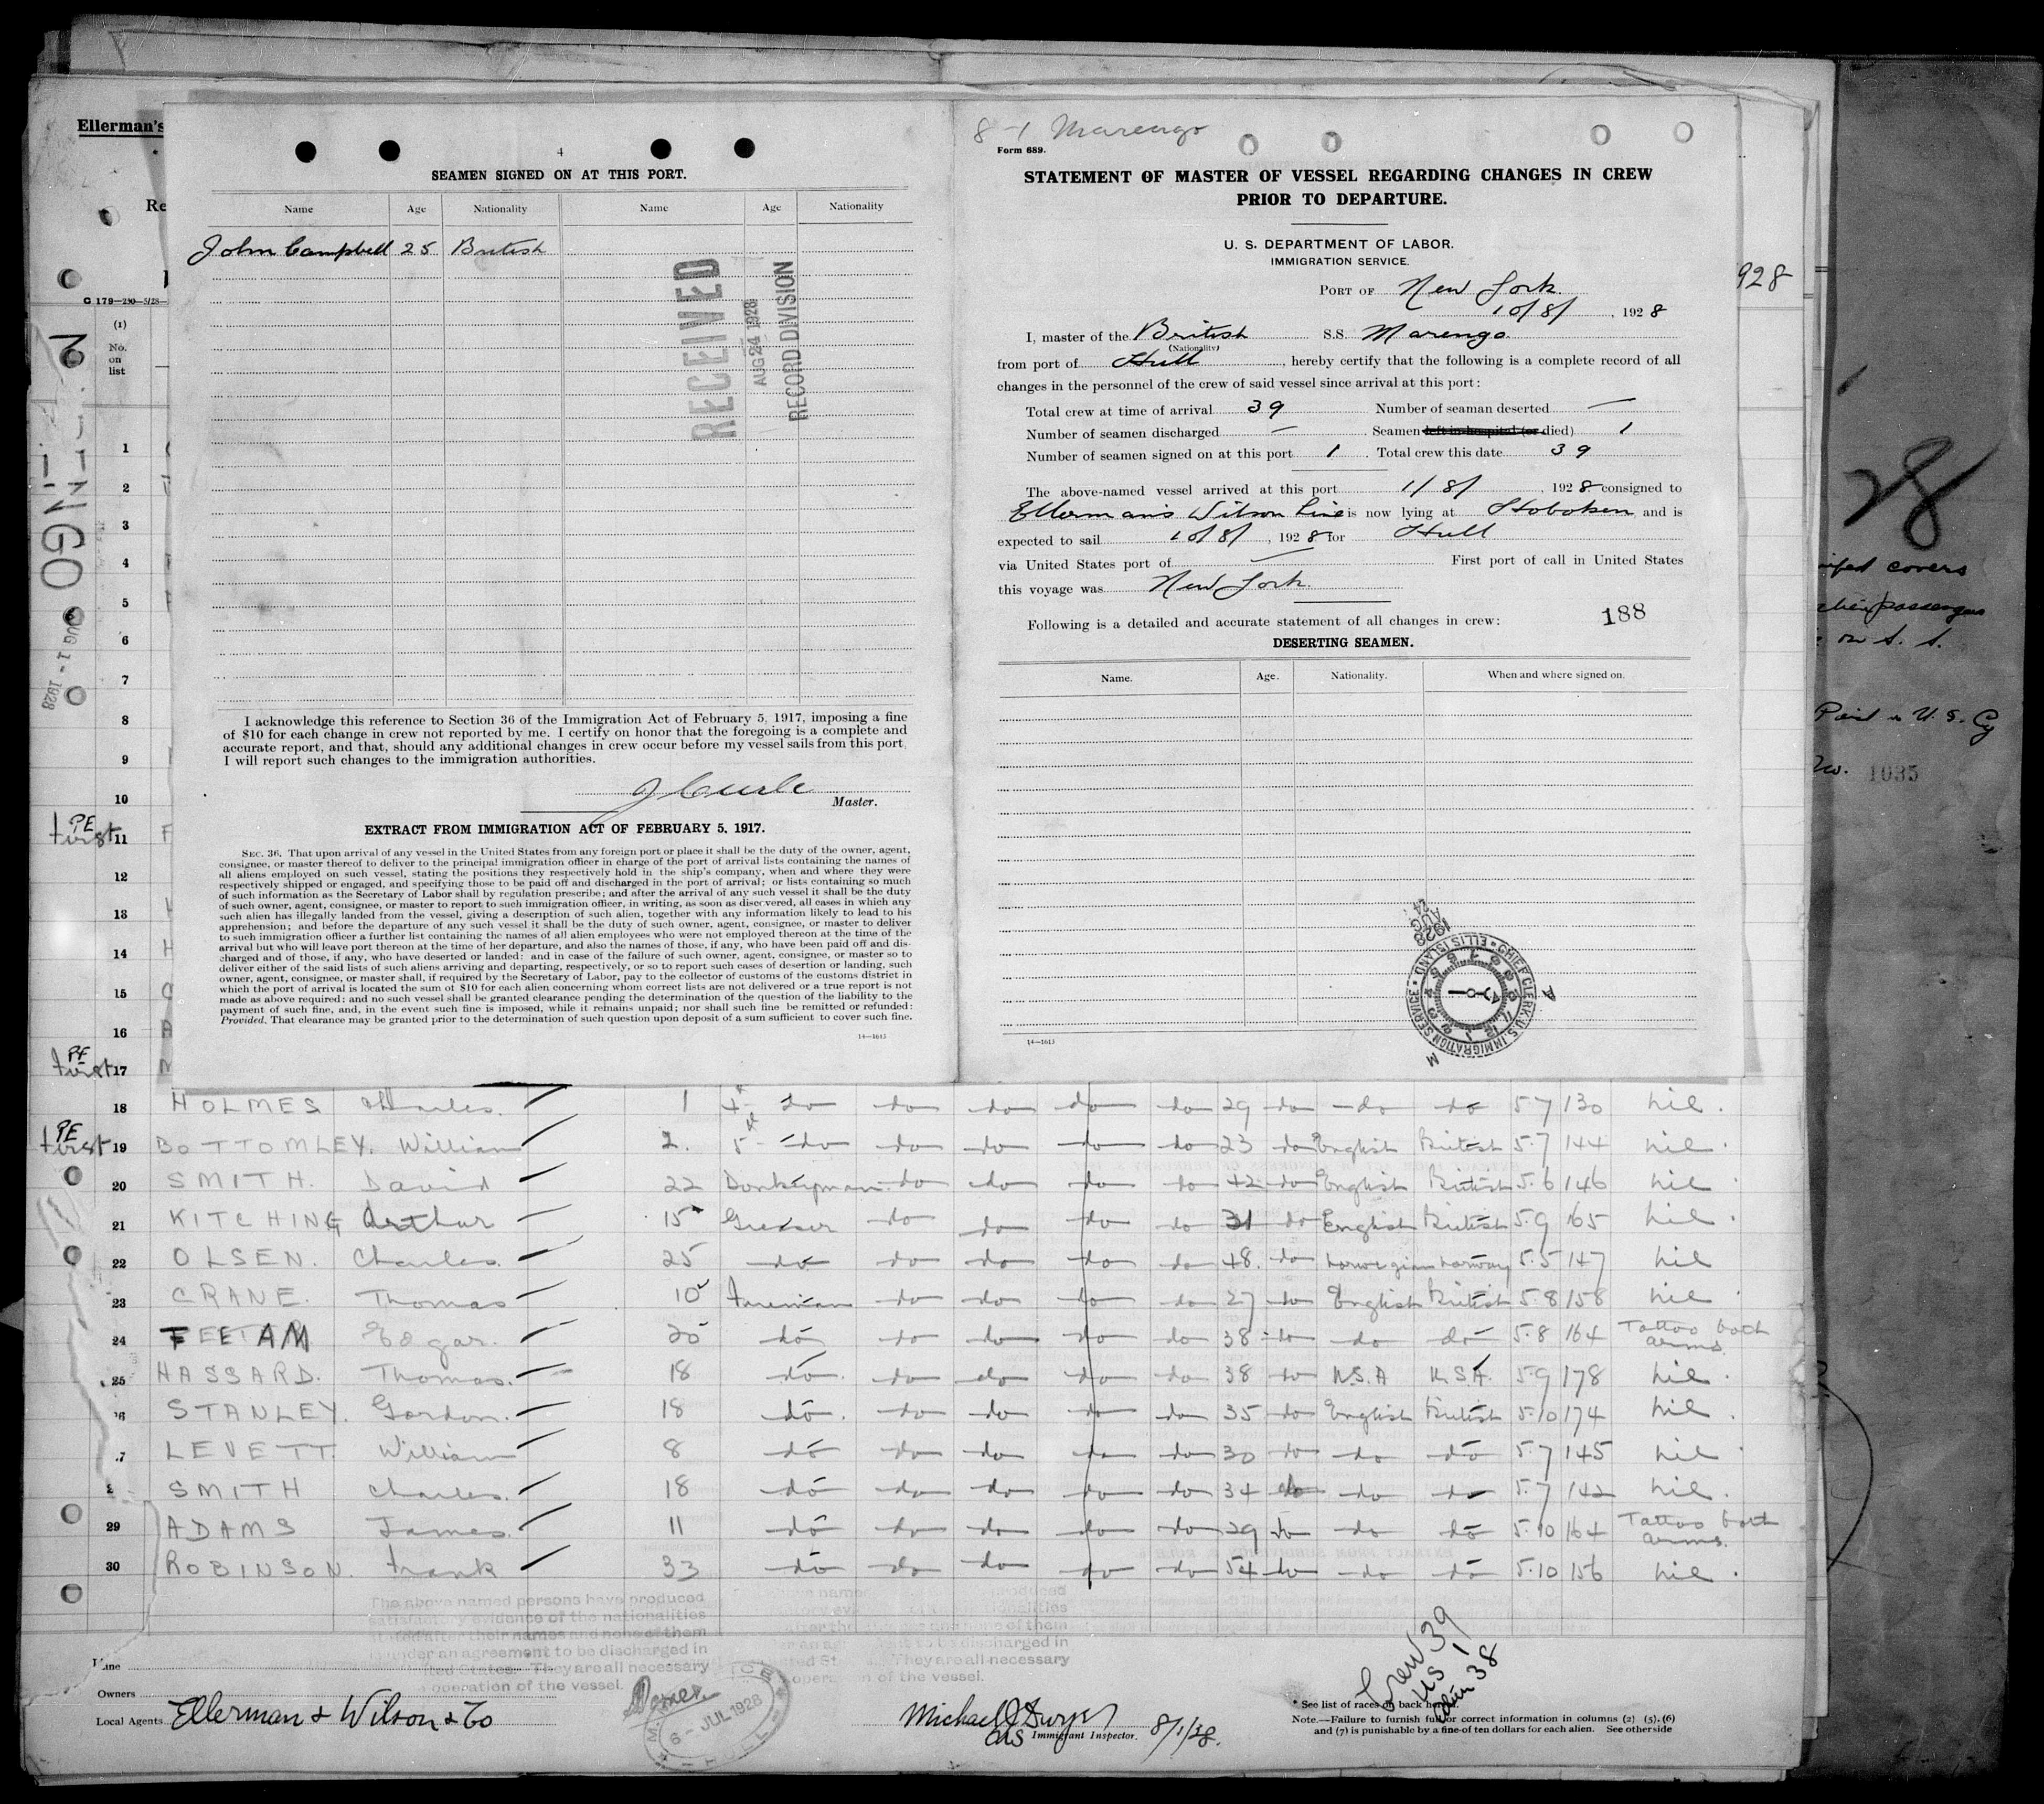 Ellerman's
Re
G 179—250—5/28—
(1)
No.
on
list
4
SEAMEN SIGNED ON AT THIS PORT.
Name Age Nationality Name Age Nationality
John Campbell 25 British
RECEIVED
AUG 24 1928
RECORD DIVISION
I acknowledge this reference to Section 36 of the Immigration Act of February 5, 1917, imposing a fine
of $10 for each change in crew not reported by me. I certify on honor that the foregoing is a complete and
accurate report, and that, should any additional changes in crew occur before my vessel sails from this port,
I will report such changes to the immigration authorities.
Master.
EXTRACT FROM IMMIGRATION ACT OF FEBRUARY 5, 1917.
SEC. 36. That upon arrival of any vessel in the United States from any foreign port or place it shall be the duty of the owner, agent,
consignee, or master thereof to deliver to the principal immigration officer in charge of the port of arrival lists containing the names of
all aliens employed on such vessel, stating the positions they respectively hold in the ship's company, when and where they were
respectively shipped or engaged, and specifying those to be paid off and discharged in the port of arrival; or lists containing so much
of such information as the Secretary of Labor shall by regulation prescribe; and after the arrival of any such vessel it shall be the duty
of such owner, agent, consignee, or master to report to such immigration officer, in writing, as soon as discovered, all cases in which any
such alien has illegally landed from the vessel, giving a description of such alien, together with any information likely to lead to his
apprehension; and before the departure of any such vessel it shall be the duty of such owner, agent, consignee, or master to deliver
to such immigration officer a further list containing the names of all alien employees who were not employed thereon at the time of the
arrival but who will leave port thereon at the time of her departure, and also the names of those, if any, who have been paid off and dis-
charged and of those, if any, who have deserted or landed; and in case of the failure of such owner, agent, consignee, or master so to
deliver either of the said lists of such aliens arriving and departing, respectively, or so to report such cases of desertion or landing, such
owner, agent, consignee, or master shall, if required by the Secretary of Labor, pay to the collector of customs of the customs district in
which the port of arrival is located the sum of $10 for each alien concerning whom correct lists are not delivered or a true report is not
made as above required; and no such vessel shall be granted clearance pending the determination of the question of the liability to the
payment of such fine, and, in the event such fine is imposed, while it remains unpaid; nor shall such fine be remitted or refunded:
Provided, That clearance may be granted prior to the determination of such question upon deposit of a sum sufficient to cover such fine.
14—1613
8-1 Marengo
Form 689.
STATEMENT OF MASTER OF VESSEL REGARDING CHANGES IN CREW
PRIOR TO DEPARTURE.
U. S. DEPARTMENT OF LABOR.
IMMIGRATION SERVICE.
PORT OF New York
10/8/, 1928
I, master of the British S.S. Marengo
(Nationality)
from port of Hull, hereby certify that the following is a complete record of all
changes in the personnel of the crew of said vessel since arrival at this port:
Total crew at time of arrival 39 Number of seaman deserted —
Number of seamen discharged — Seamen left in hospital (or died) 1
Number of seamen signed on at this port 1. Total crew this date 39
The above-named vessel arrived at this port 1/8/, 1928 consigned to
Ellerman's Wilson Line is now lying at Hoboken and is
expected to sail 10/8/, 1928 for Hull
via United States port of — First port of call in United States
this voyage was New York.
Following is a detailed and accurate statement of all changes in crew: 188
DESERTING SEAMEN.
Name. Age. Nationality. When and where signed on.
1928 AUG 24
CHIEF CLERK U.S. IMMIGRATION SERVICE • ELLIS ISLAND
14—1613
928
28
covers
passengers
on S. S.
Paid in U. S. Cy
No. 1035
NGO
AUG 1 - 1928
1
2
3
4
5
6
7
8
9
10
PE first 11
12
13
14
15
16
PE first 17
18 HOLMES Charles. 1 4 do do do do do 29 do do do 5.7 130 nil.
PE first 19 BOTTOMLEY. William 2. 5 do do do do do 23 do English British 5.7 144 nil.
20 SMITH. David 22 Donkeyman do do do do 42 do English British 5.6 146 nil.
21 KITCHING Arthur 15 Greaser do do do do 31 do English British 5.9 165 nil.
22 OLSEN. Charles. 25 do do do do do 48. do Norwegian Norway 5.5 147 nil
23 CRANE. Thomas 10 Fireman do do do do 27 do English British 5.8 158 nil.
24 FEETAM Edgar. 20 do do do do do 38 do do do 5.8 164 Tattoo both arms.
25 HASSARD. Thomas. 18 do do do do do 38 do U.S.A U.S.A. 5.9 178 nil.
26 STANLEY. Gordon. 18 do. do do do do 35 do English British 5.10 174 nil.
27 LEVETT. William 8 do do do do do 30 do do do 5.7 145 nil.
28 SMITH Charles. 18 do do do do do 34 do do do 5.7 142 nil.
29 ADAMS James. 11 do do do do do 29 do do do 5.10 164 Tattoo both arms.
30 ROBINSON. Frank 33 do do do do do 54 do do do 5.10 156 nil.
The above named persons have produced
satisfactory evidence of the nationalities
stated after their names and none of them
under an agreement to be discharged in
United States. They are all necessary
operation of the vessel.
Line
Owners
Local Agents Ellerman & Wilson & Co
6 - JUL 1928
Michael J Dwyer
Immigrant Inspector. 8/1/28.
Crew 39
US 1
Alien 38
* See list of races on back hereof.
Note.—Failure to furnish full or correct information in columns (2) (5), (6)
and (7) is punishable by a fine of ten dollars for each alien. See otherside